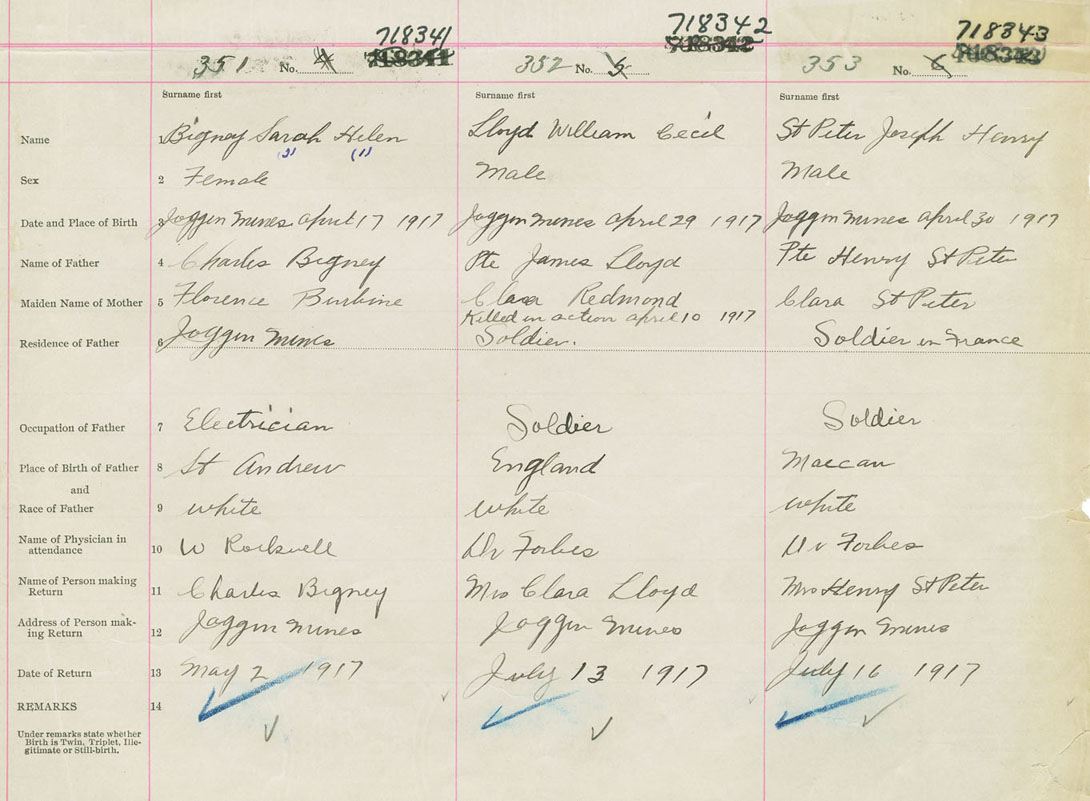 718341 718342 718343
351 No. 4 718341 352 No. 5 718342 353 No. 6 718343
Surname first Surname first Surname first
Name 1 Bigney Sarah Helen Lloyd William Cecil St Peter Joseph Henry
(2) (1)
Sex 2 Female Male Male
Date and Place of Birth 3 Joggin Mines april 17 1917 Joggin Mines april 29 1917 Joggin Mines april 30 1917
Name of Father 4 Charles Bigney Pte James Lloyd Pte Henry St Peter
Maiden Name of Mother 5 Florence Burbine Clara Redmond Clara St Peter
Killed in action april 10 1917
Residence of Father 6 Joggin Mines Soldier. Soldier in France
Occupation of Father 7 Electrician Soldier Soldier
Place of Birth of Father 8 St Andrew England Maccan
and
Race of Father 9 white White white
Name of Physician in
attendance 10 W Rockwell Dr Forbes Dr Forbes
Name of Person making
Return 11 Charles Bigney Mrs Clara Lloyd Mrs Henry St Peter
Address of Person mak-
ing Return 12 Joggin Mines Joggin Mines Joggin Mines
Date of Return 13 May 2 1917 July 13 1917 July 16 1917
REMARKS 14
Under remarks state whether
Birth is Twin, Triplet, Ille-
gitimate or Still-birth.